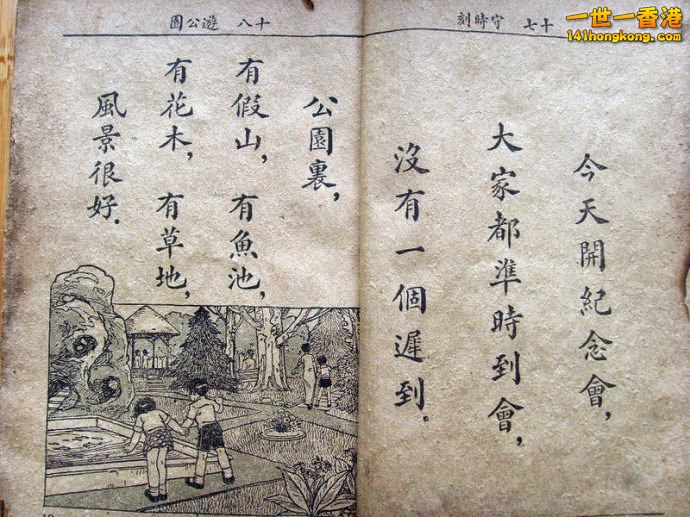 一世一香港
141hongkong.com
十七 守時刻
今天開紀念會，
大家都準時到會，
沒有一個遲到。
十八 遊公園
公園裏，
有假山，有魚池，
有花木，有草地，
風景很好．